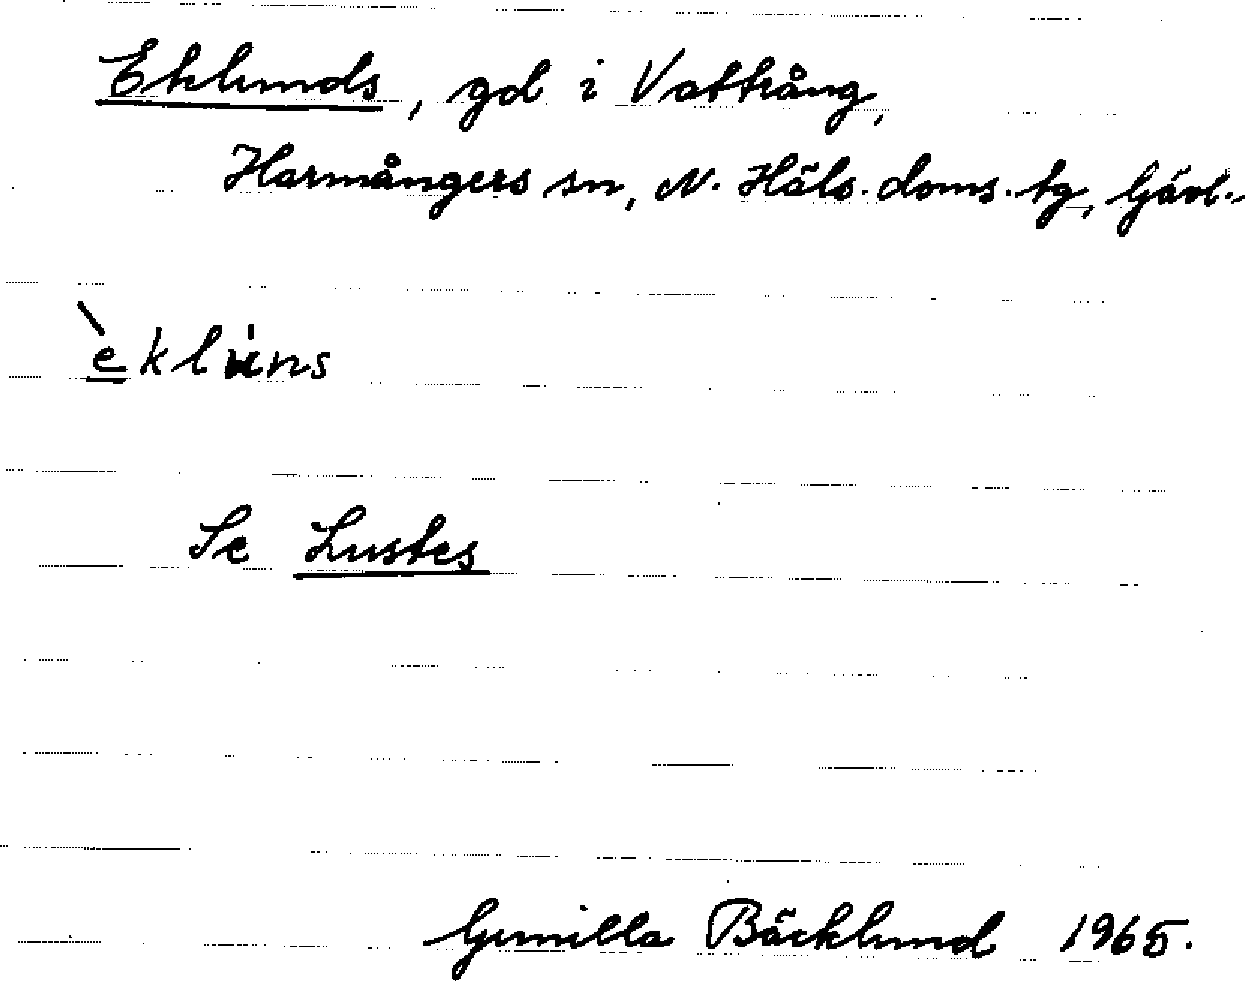 Eklunds, gd i Vattrång,
Harmångers sn, N. Häls. doms. tg, Gävl.
èkluns
Se Lustes
Gunilla Bäcklund 1965.